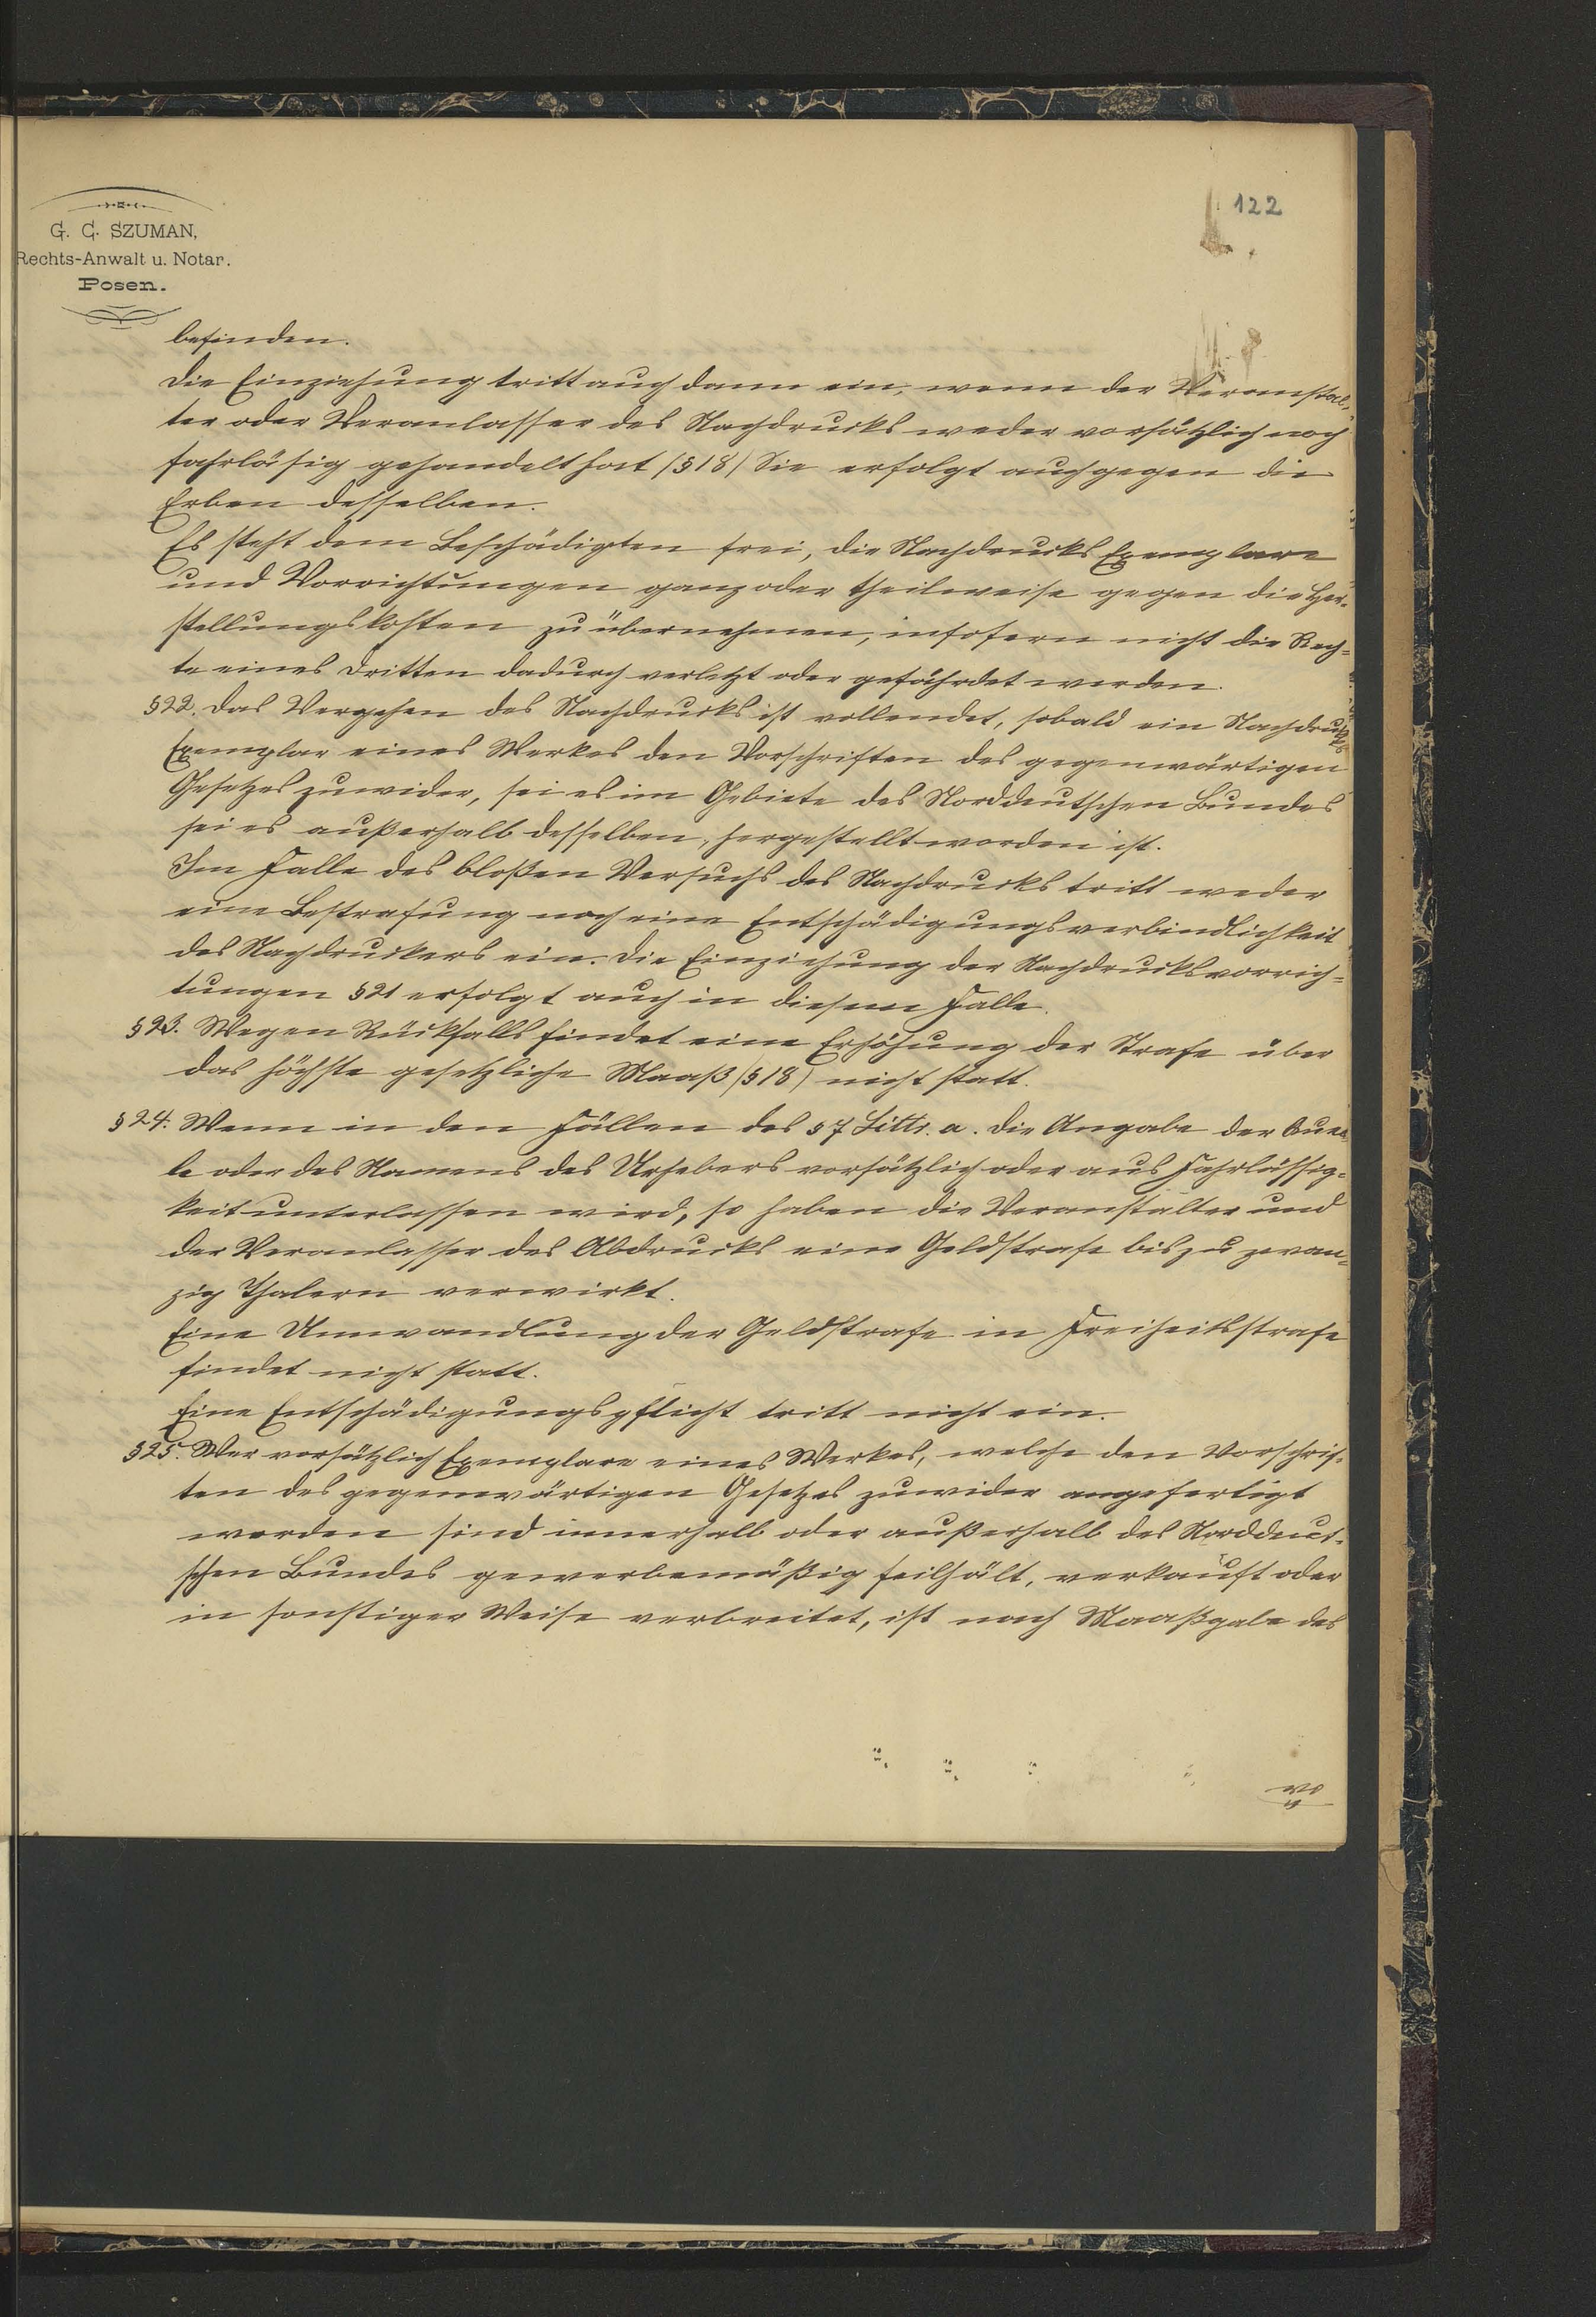 122
G. C. SZUMAN,
Rechts-Anwalt u. Notar.
Posen.
befinden.
Die Einziehung tritt auch dann ein, wenn der Veranstal-
ter oder Veranlasser des Nachdrucks weder vorsätzlich noch
fahrläsig gehandelt hat (§ 18) Sie erfolgt auch gegen die
Erben desselben.
Es steht dem Beschädigten frei, die Nachdrucks Exemplare
und Vorrichtungen ganz oder theilweise gegen die Her-
stellungskosten zu übernehmen, insofern nicht die Rech-
te eines Dritten dadurch verletzt oder gefährdet werden.
§ 22. Das Vergehen des Nachdrucks ist vollendet, sobald ein Nachdrucks
Exemplar eines Werkes den Vorschriften des gegenwärtigen
Gesetzes zuwider, sei es im Gebiete des Norddeutschen Bundes
sei es außerhalb desselben, hergestellt worden ist.
Im Falle des bloßen Versuchs des Nachdrucks tritt weder
eine Bestrafung noch eine Entschädigungsverbindlichkeit
des Nachdruckers ein. Die Einziehung der Nachdrucksvorrich-
tungen § 21 erfolgt auch in diesem Falle.
§ 23. Wegen Rückfalls findet eine Erhöhung der Strafe über
das höchste gesetzliche Maaß (§ 18) nicht statt.
§ 24. Wenn in den Fällen des § 7 Littr. a. die Angabe der Quel-
le oder des Namens des Urhebers vorsätzlich oder aus Fahrlässig-
keit unterlassen wird, so haben die Veranstalter und
der Veranlasser des Abdrucks eine Geldstrafe bis zu zwan-
zig Thalern verwirkt.
Eine Umwandlung der Geldstrafe in Freiheitsstrafe
findet nicht statt.
Eine Entschädigungspflicht tritt nicht ein.
§ 25. Wer vorsätzlich Exemplare eines Werkes, welche den Vorschrif-
ten des gegenwärtigen Gesetzes zuwider angefertigt
worden sind innerhalb oder außerhalb des Norddeut-
schen Bundes gewerbemäßig feilhält, verkauft oder
in sonstiger Weise verbreitet, ist nach Maaßgabe des